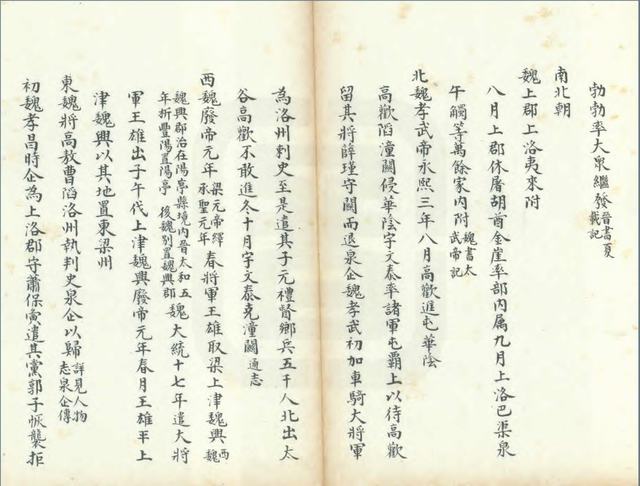 勃勃率大衆繼發晉書夏載記
南北朝
魏上郡上洛夷来附
八月上郡休屠胡酋金崖率部内属九月上洛巴渠泉
午觸等萬餘家内附魏書太武帝記
北魏孝武帝永熙三年八月高歡進屯華陰
高歡滔潼關侵華陰字文泰率諸軍屯霸上以待高歡
留其將薛瑾守關而退泉企魏孝武初加車騎大將軍
為洛州剌史至是遣其子元禮督鄉兵五千人北出太
谷高歡不敢進冬十月字文泰克潼關通志
西魏廢帝元年梁元帝繹承聖元年春將軍王雄取梁上津魏興西魏
魏興郡治在陽亭縣境内晉太和五年折豐陽置陽亭後魏别置魏興郡魏大統十七年遣大將
軍王雄出子午伐上津魏興廢帝元年春月王雄平上
津魏興以其地置東梁州
東魏將高敖曹滔洛州執刺史泉企以歸詳見人物志泉企傳
初魏孝昌時企為上洛郡守蕭保寅遣其黨郭子恢襲拒